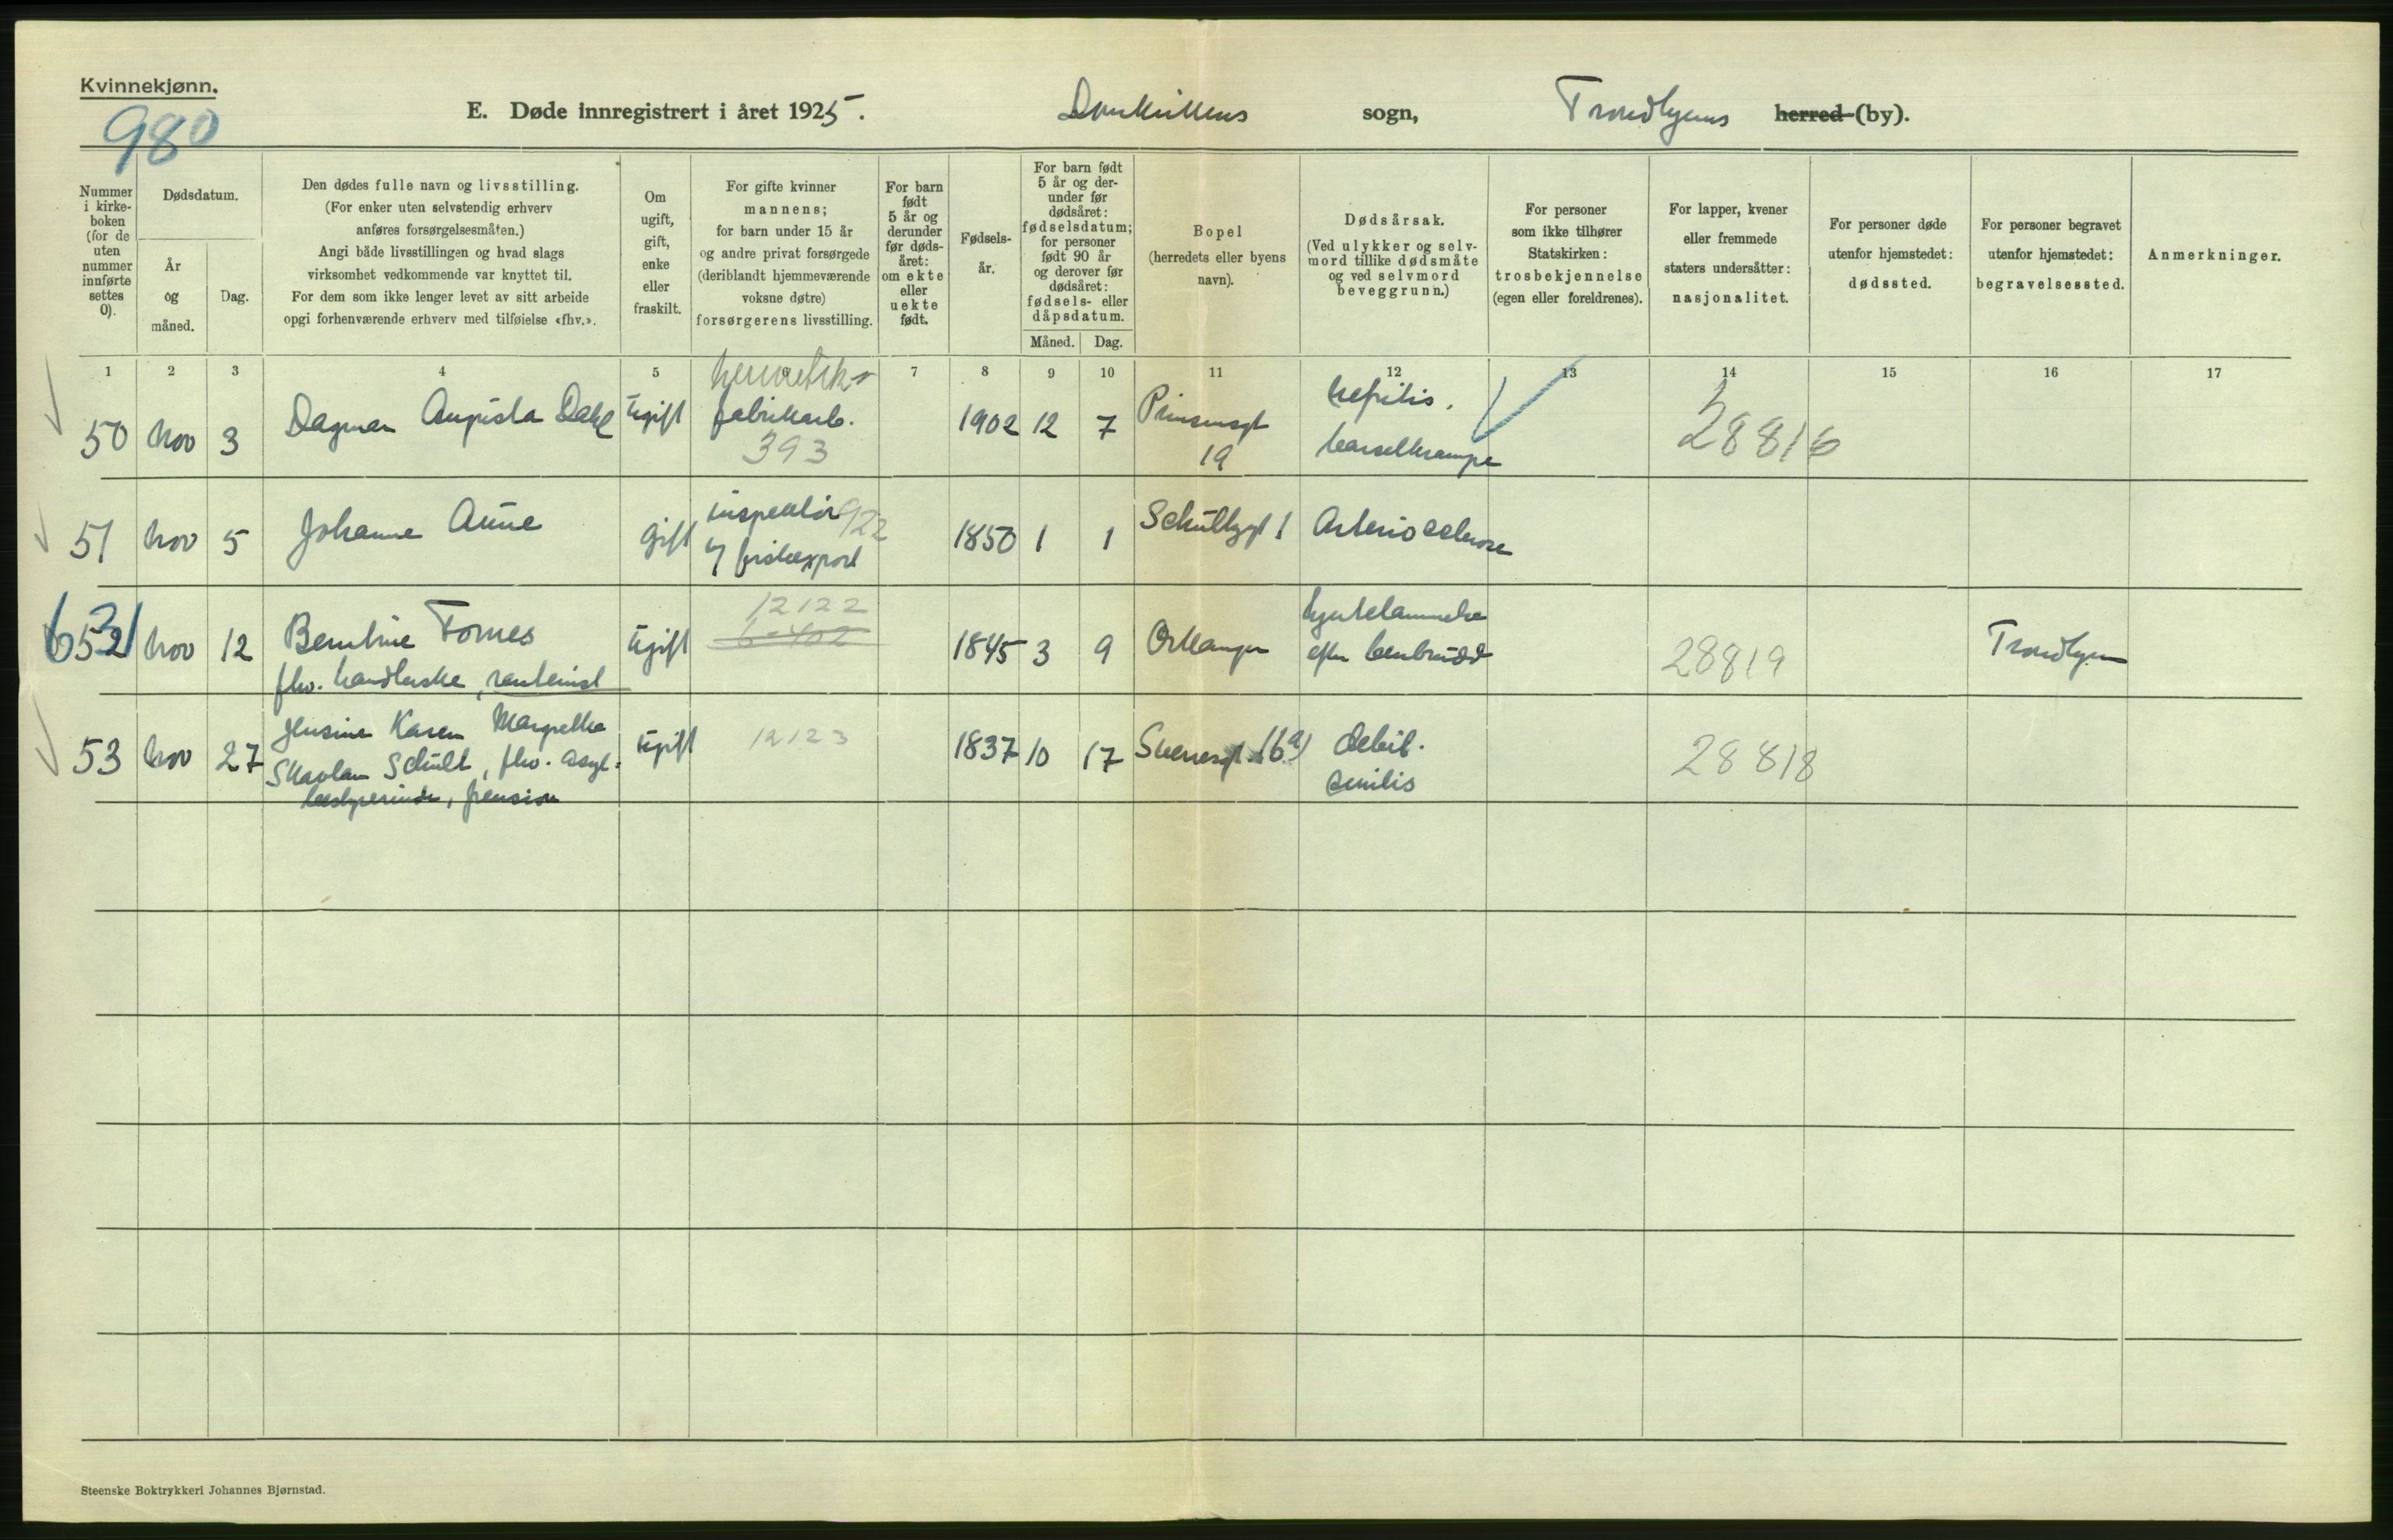 Kvinnekjønn.
980
E. Døde innregistrert i året 1925.
Domkirkens sogn, Trondhjems herred (by).
Nummer i kirke-boken (for de uten nummer innførte settes 0).
Dødsdatum.
År og måned.
Dag.
Den dødes fulle navn og livsstilling.
(For enker uten selvstendig erhverv
anføres forsørgelsesmåten.)
Angi både livsstillingen og hvad slags
virksomhet vedkommende var knyttet til.
For dem som ikke lenger levet av sitt arbeide
opgi forhenværende erhverv med tilføielse «fhv.».
Om
ugift,
gift,
enke
eller
fraskilt.
For gifte kvinner
mannens;
for barn under 15 år
og andre privat forsørgede
(deriblandt hjemmeværende
voksne døtre)
forsørgerens livsstilling.
For barn
født
5 år og
derunder
før døds-
året:
om ekte
eller
uekte
født.
Fødsels-
år.
For barn født
5 år og der-
under før
dødsåret:
fødselsdatum;
for personer
født 90 år
og derover før
dødsåret:
fødsels- eller
dåpsdatum.
Måned. Dag.
Bopel
(herredets eller byens
navn).
Dødsårsak.
(Ved ulykker og selv-
mord tillike dødsmåte
og ved selvmord
beveggrunn.)
For personer
som ikke tilhører
Statskirken:
trosbekjennelse
(egen eller foreldrenes).
For lapper, kvener
eller fremmede
staters undersåtter:
nasjonalitet.
For personer døde
utenfor hjemstedet:
dødssted.
For personer begravet
utenfor hjemstedet:
begravelsessted.
Anmerkninger.
1 2 3 4 5 6 7 8 9 10 11 12 13 14 15 16 17
50 nov 3 Dagmar Augusta Dahl ugift
hermetik-
fabrikarb.
393
1902 12 7 Prinsensgt
19
nefritis.
barselkrampe
28816
51 nov 5 Johanne Aune gift
inspektør 922
v/ fiskexport
1850 1 1 Schultzgt 1 Arteriosclerose
52 nov 12 Berntine Fornes
fhv. handlerske, rentenist
ugift
12122
1845 3 9 Orkanger
hjertelammelse
efter benbrudd
28819
Trondhjem
53 nov 27 Jensine Karen Margrethe
Skavlan Schult, fhv. asyl-
bestyrerinde, pension
ugift
12123
1837 10 17 Sverresgt 16a)
debil.
senilis
28818
Steenske Boktrykkeri Johannes Bjørnstad.